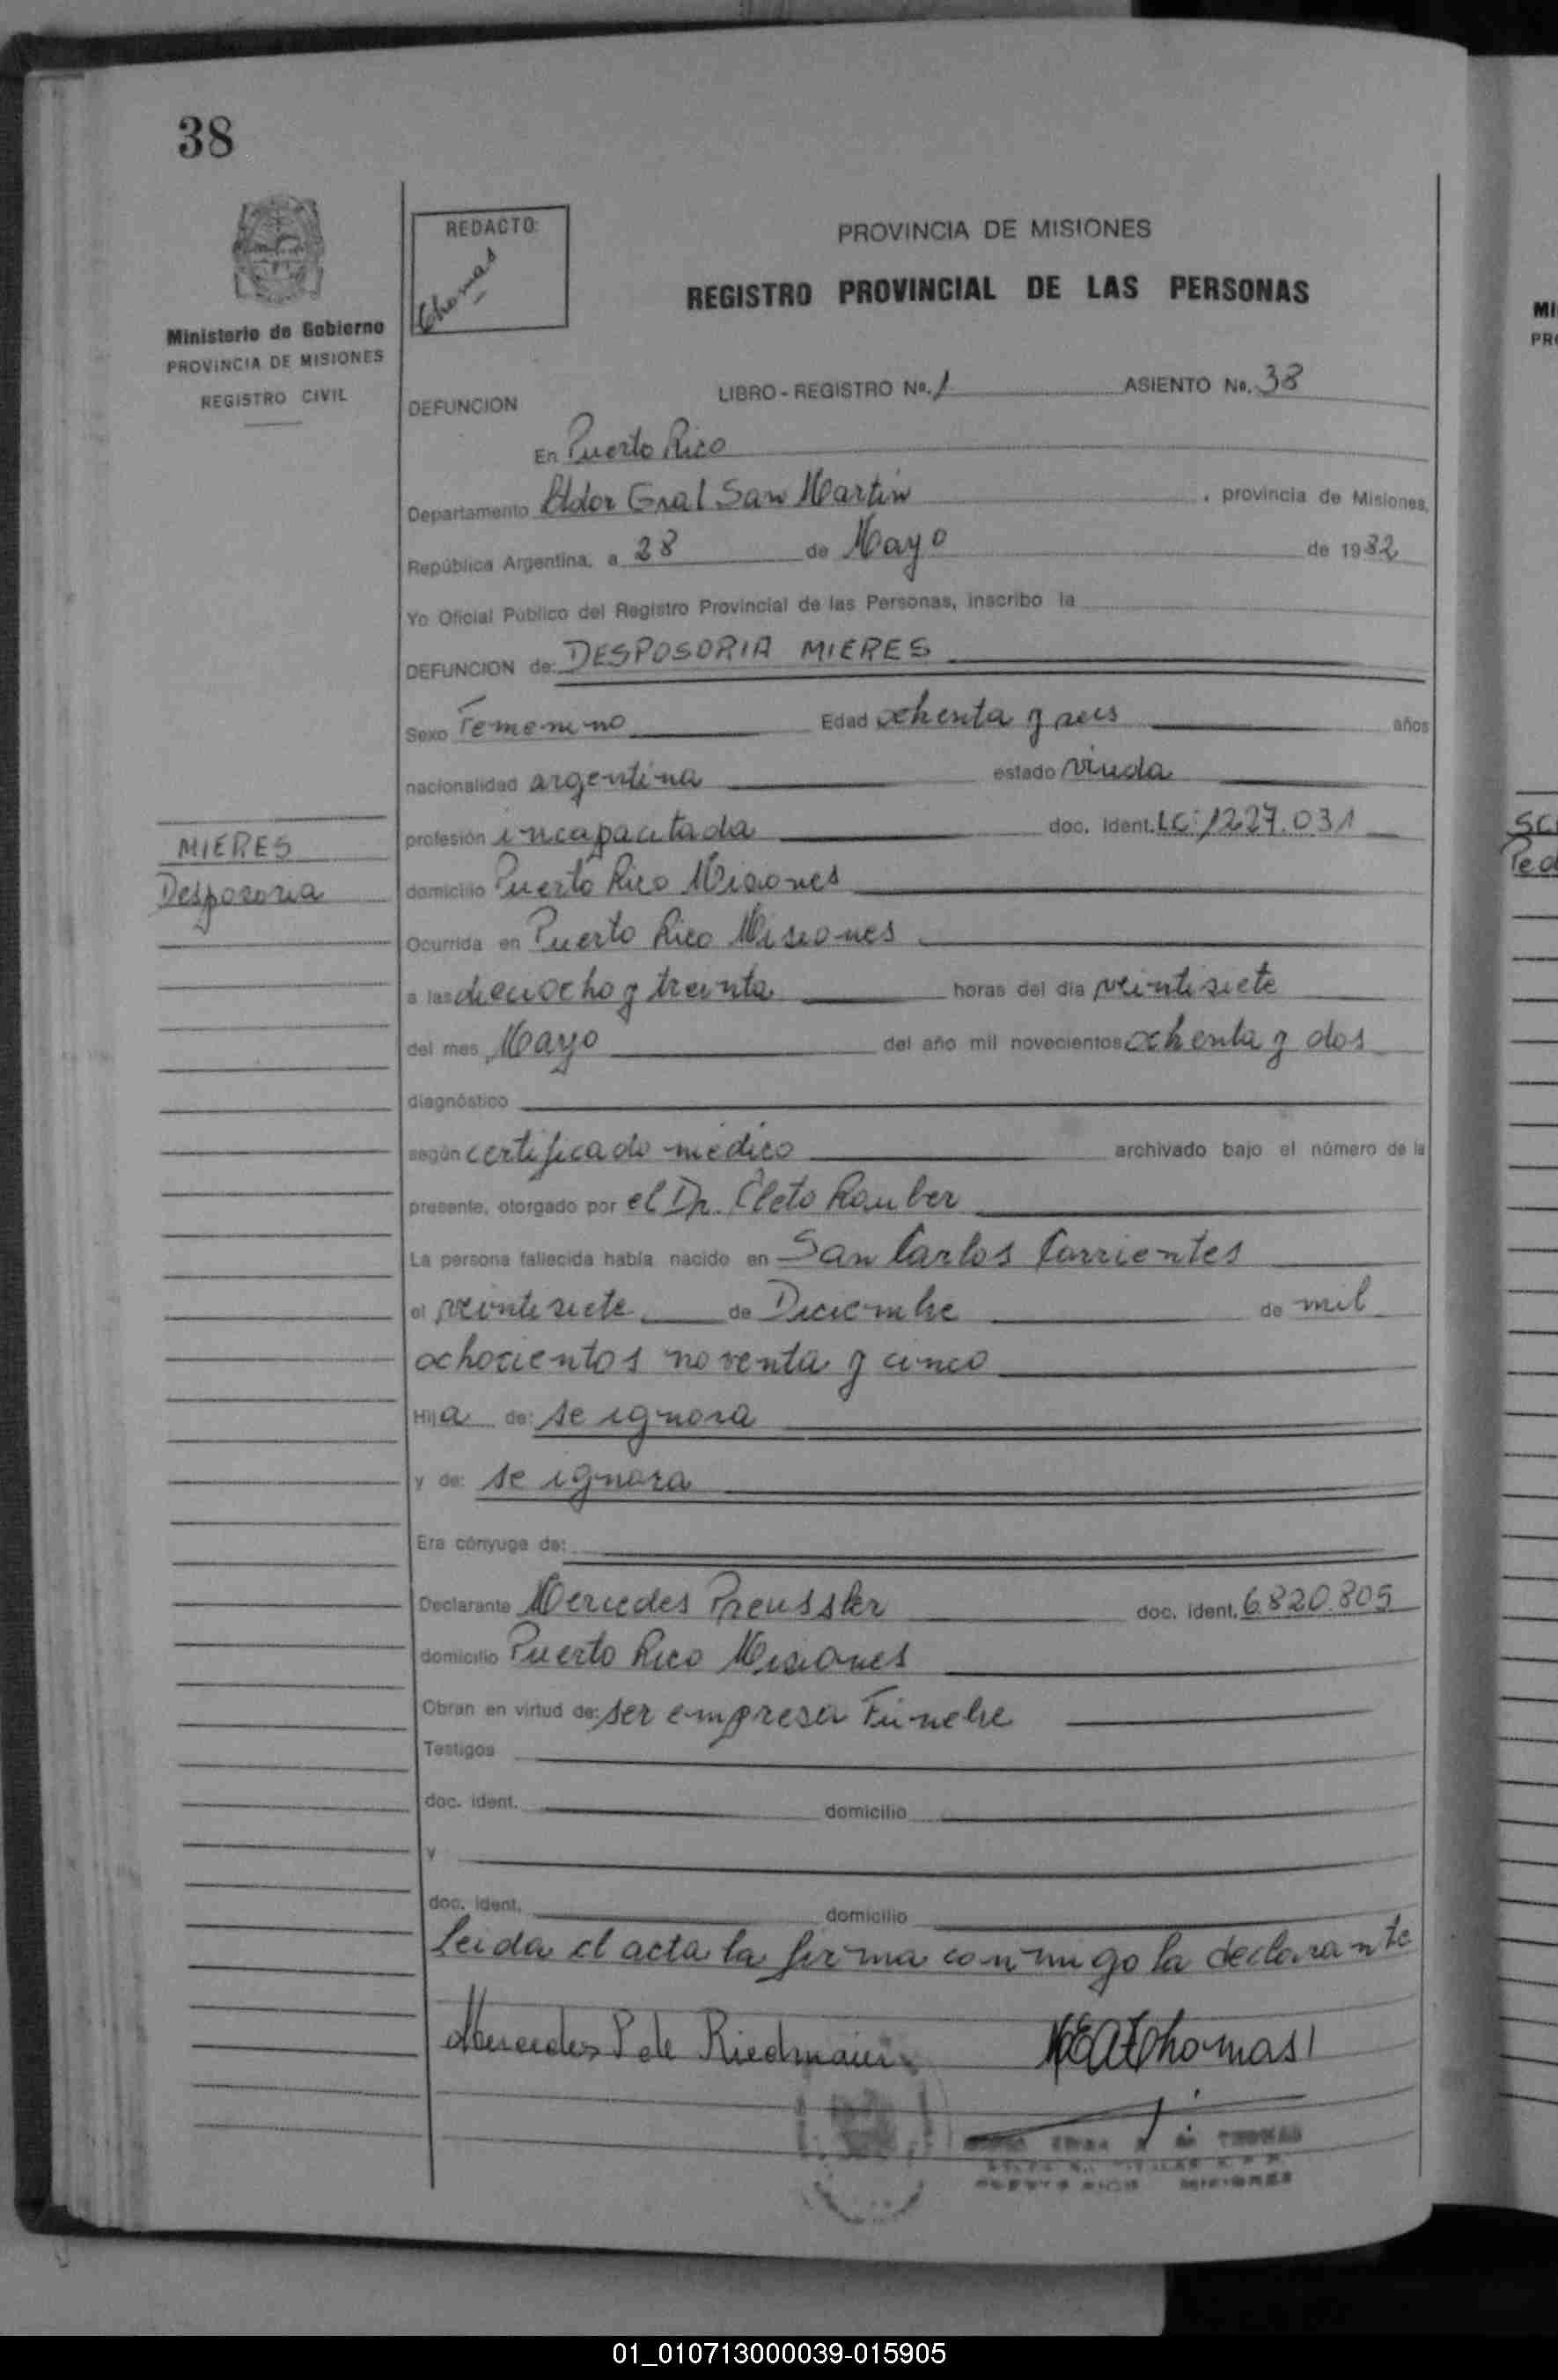 38
REDACTO:
Thomas
Ministerio de Gobierno
PROVINCIA DE MISIONES
REGISTRO CIVIL
PROVINCIA DE MISIONES
REGISTRO PROVINCIAL DE LAS PERSONAS
DEFUNCION LIBRO - REGISTRO No. 1 ASIENTO No. 38
En Puerto Rico
Departamento Ldor Gral San Martin , provincia de Misiones,
República Argentina, a 28 de Mayo de 1982
Yo Oficial Público del Registro Provincial de las Personas, inscribo la
DEFUNCION de: DESPOSORIA MIERES
Sexo Femenino Edad ochenta y seis años
nacionalidad argentina estado viuda
MIERES
Desposoria
profesión incapacitada doc. ident. LC: 1227.031
domicilio Puerto Rico Misiones
Ocurrida en Puerto Rico Misiones
a las dieciocho y treinta horas del día veintisiete
del mes Mayo del año mil novecientos ochenta y dos
diagnóstico
según certificado medico archivado bajo el número de la
presente, otorgado por el Dr. Cleto Rauber
La persona fallecida había nacido en San Carlos Corrientes
el veintisiete de Diciembre de mil
ochocientos noventa y cinco
Hija de: se ignora
y de: se ignora
Era cónyuge de:
Declarante Mercedes Preussler doc. ident. 6.820.805
domicilio Puerto Rico Misiones
Obran en virtud de: ser empresa Fúnebre
Testigos
doc. ident. domicilio
y
doc. ident. domicilio
Leida el acta la firma conmigo la declarante
Mercedes P de Riedmaier
Thomas
THOMAS
PUERTO RICO MISIONES
MI
PR
SC
Ped
01_010713000039-015905